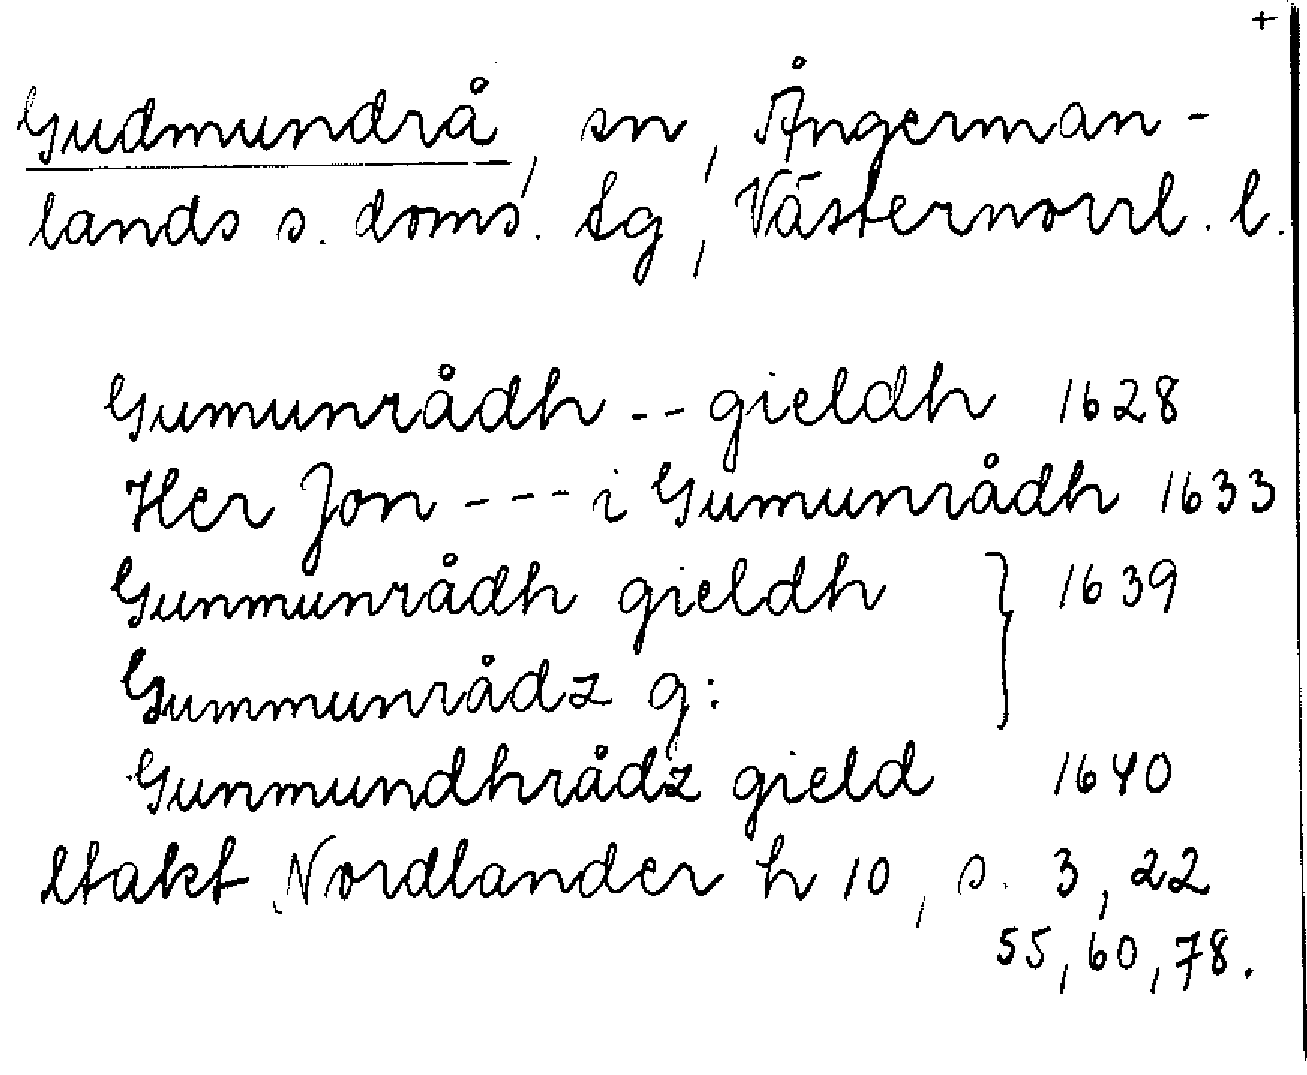 +
Gudmundrå, sn, Ångerman-
lands s. doms. tg, Västernorrl. l.
Gumunrådh -- gieldh 1628
Her Jon --- i Gumunrådh 1633
Gunmunrådh gieldh } 1639
Gummunrådz g:
Gunmundhrådz gield 1640
Utakt Nordlander h 10, s. 3, 22
55, 60, 78.